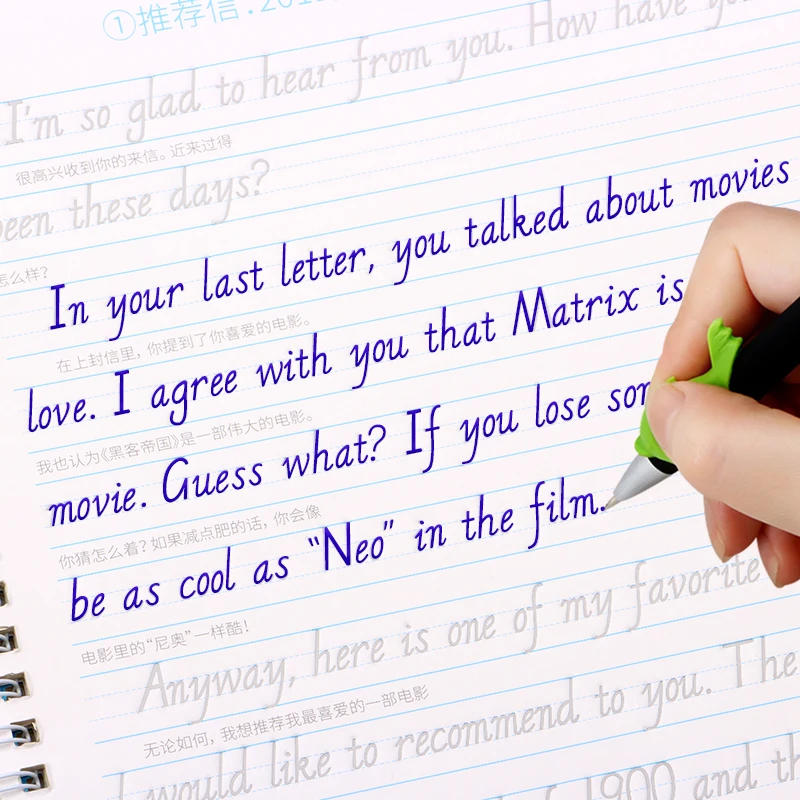 ①推荐信:
I'm so glad to hear from you. How have
很高兴收到你的来信。近来过得
been these days?
怎么样?
In your last letter, you talked about movies
在上封信里,你提到了你喜爱的电影。
love. I agree with you that Matrix is
我也认为《黑客帝国》是一部伟大的电影。
movie. Guess what? If you lose
你猜怎么着?如果减点肥的话,你会像
be as cool as “Neo” in the film.
电影里的“尼奥”一样酷!
Anyway, here is one of my favorite
无论如何,我想推荐我最喜爱的一部电影
I would like to recommend to you. The
of 1900 and